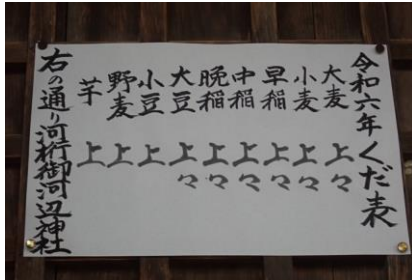 令和六年くだ表
大麦 上々
小麦 上々
早稲 上々
中稲 上々
晩稲 上々
大豆 上々
小豆 上
野麦 上
芋 上
右の通り河桁御河辺神社